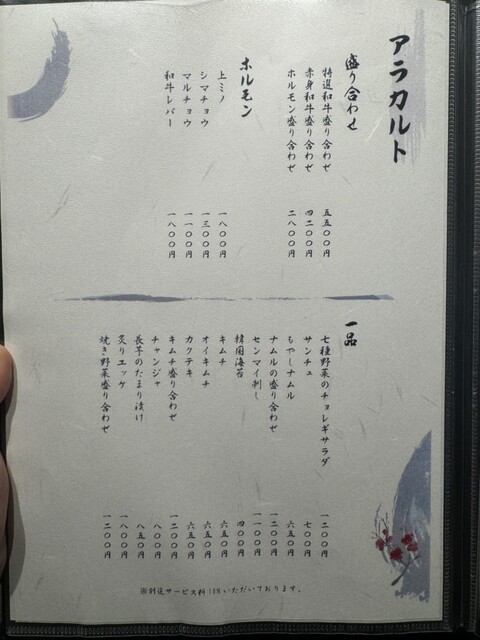 アラカルト
盛り合わせ
特選和牛盛り合わせ 五五〇〇円
赤身和牛盛り合わせ 四二〇〇円
ホルモン盛り合わせ 二八〇〇円
ホルモン
上ミノ 一八〇〇円
シマチョウ 一三〇〇円
マルチョウ 一一〇〇円
和牛レバー 一八〇〇円
一品
七種野菜のチョレギサラダ 一二〇〇円
サンチュ 七〇〇円
もやしナムル 六五〇円
ナムルの盛り合わせ 一二〇〇円
センマイ刺し 一一〇〇円
韓国海苔 四〇〇円
キムチ 六五〇円
オイキムチ 六五〇円
カクテキ 六五〇円
キムチ盛り合わせ 一二〇〇円
チャンジャ 八〇〇円
長芋のたまり漬け 八五〇円
炙りエッケ 一八〇〇円
焼き野菜盛り合わせ 一二〇〇円
※別途サービス料10%いただいております。